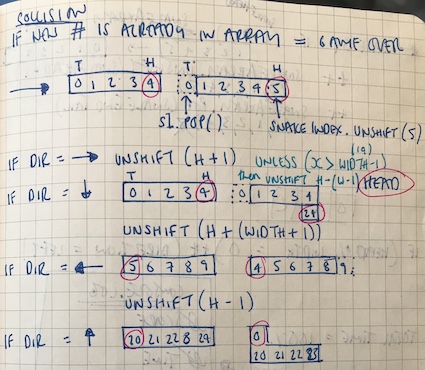 COLLISION
IF NEW # IS ALREADY IN ARRAY = GAME OVER
T H T H
0 1 2 3 4 0 1 2 3 4 5
SI.POP() SNAKE INDEX.UNSHIFT(5)
IF DIR = → UNSHIFT (H+1) UNLESS (X > WIDTH-1) (19)
then UNSHIFT H-(W-1) HEAD
T H
IF DIR = ↓ 0 1 2 3 4 0 1 2 3 4
24
UNSHIFT (H + (WIDTH+1))
IF DIR = ← 5 6 7 8 9 4 5 6 7 8 9
UNSHIFT (H-1)
IF DIR = ↑ 20 21 22 23 24 0
20 21 22 23